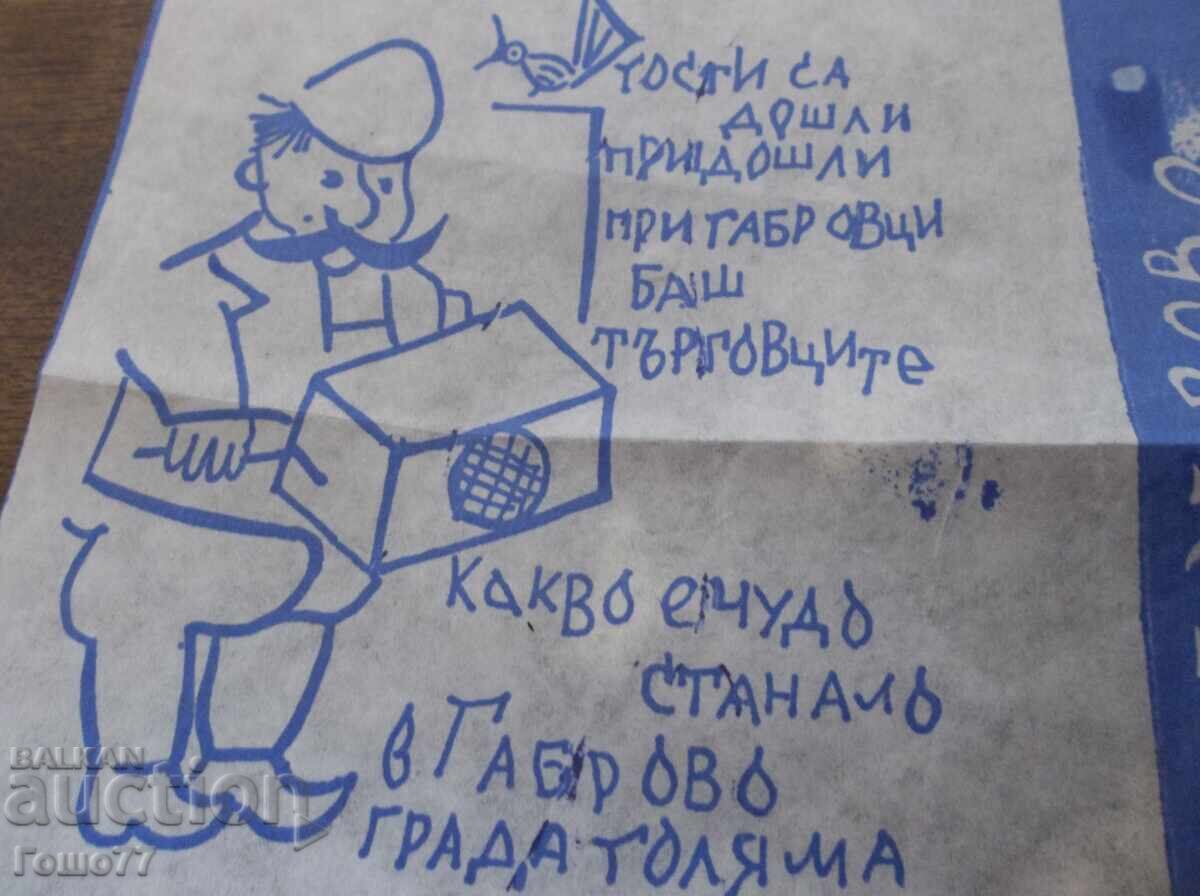 ГОСТИ СА
ДОШЛИ
ПРИДОШЛИ
ПРИ ГАБРОВЦИ
БАШ
ТЪРГОВЦИТЕ
КАКВО Е ЧУДО
СТАНАЛО
В ГАБРОВО
ГРАДА ГОЛЯМА
BALKAN
auction
Гошо77